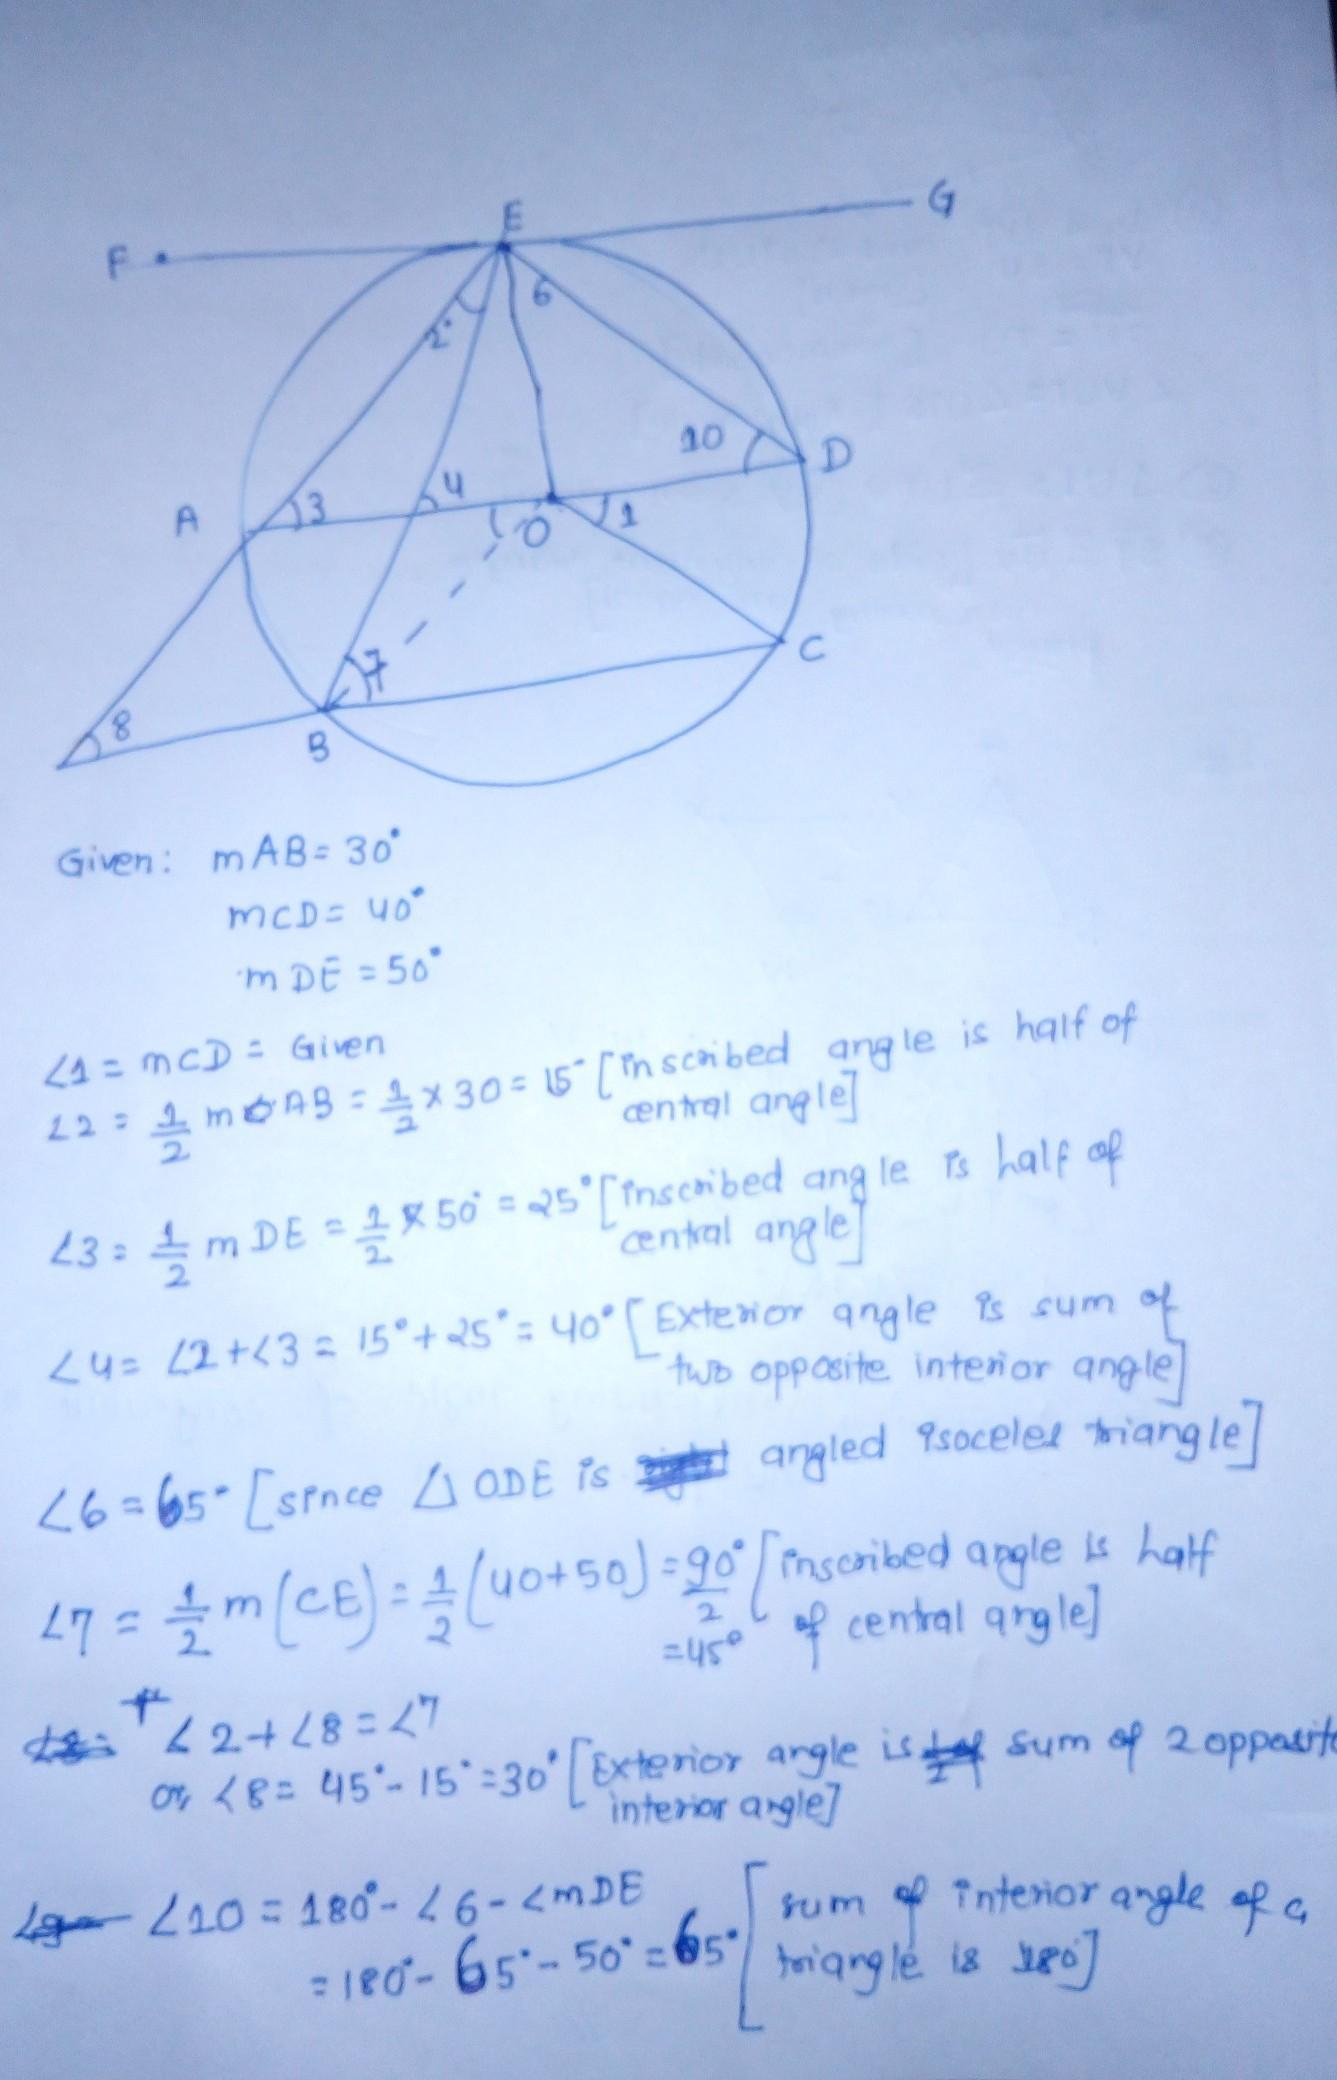 E
G
F
6
2
10
D
4
A
3
O
1
C
7
8
B
Given: mAB = 30°
mCD = 40°
mDE = 50°
∠1 = mCD = Given
∠2 = 1/2 m AB = 1/2 × 30 = 15° [inscribed angle is half of
central angle]
∠3 = 1/2 m DE = 1/2 × 50° = 25° [inscribed angle is half of
central angle]
∠4 = ∠2+∠3 = 15°+25° = 40° [Exterior angle is sum of
two opposite interior angle]
∠6 = 65° [since △ ODE is angled isoceles triangle]
∠7 = 1/2 m(CE) = 1/2 (40+50) = 90°/2 [inscribed angle is half
= 45° of central angle]
∠2+∠8 = ∠7
or, ∠8 = 45°-15° = 30° [Exterior angle is sum of 2 opposite
interior angle]
∠10 = 180° - ∠6 - ∠mDE [sum of interior angle of a
= 180° - 65° - 50° = 65° triangle is 180°]